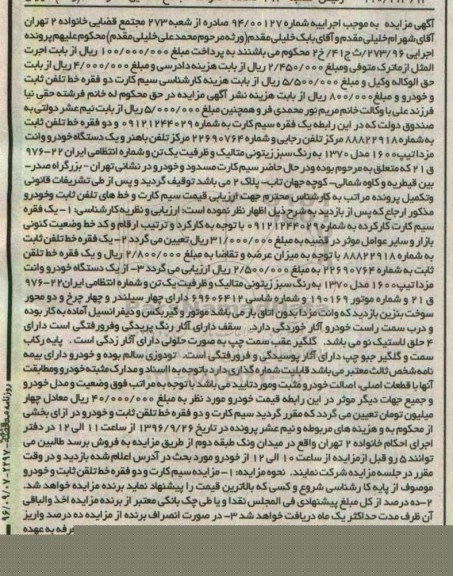 آگهی مزایده به موجب اجراییه شماره ۹۴/۰۰۱۲۷ صادره از شعبه ۲۷۳ مجتمع قضایی خانواده ۲ تهران
آقای شهرام خلیلی مقدم و آقای بابک خلیلی مقدم (ورثه مرحوم محمدعلی خلیلی مقدم) محکوم علیهم پرونده
اجرایی ۲۷۳/۹۶/ث ج۴۱/ خ۲ محکوم می باشند به پرداخت مبلغ ۱۰۰/۰۰۰/۰۰۰ ریال از بابت اجرت
المثل از ماترک متوفی و مبلغ ۲/۴۵۰/۰۰۰ ریال از بابت هزینه دادرسی و مبلغ ۴/۰۰۰/۰۰۰ ریال از بابت
حق الوکاله وکیل و مبلغ ۵/۵۰۰/۰۰۰ ریال از بابت هزینه کارشناسی سیم کارت دو فقره خط تلفن ثابت
و خودرو و مبلغ ۸۰۰/۰۰۰ ریال از بابت هزینه نشر آگهی مزایده در حق محکوم له خانم فرشته حقی نیا
فرزند علی با وکالت خانم مریم نور محمدی فر و همچنین مبلغ ۵/۰۰۰/۰۰۰ ریال از بابت نیم عشر دولتی به
صندوق دولت که در این رابطه یک فقره سیم کارت به شماره ۰۹۱۲۱۲۴۴۰۲۹ و دو فقره خط تلفن ثابت
به شماره ۸۸۸۲۲۹۱۸ مرکز تلفن رجایی و شماره ۲۲۶۹۰۷۶۴ مرکز تلفن باهنر و یک دستگاه خودرو وانت
مزدا تیپ ۱۶۰۰ مدل ۱۳۷۰ به رنگ سبز زیتونی متالیک و ظرفیت یک تن و شماره انتظامی ایران ۲۲-۹۷۶
ق ۲۱ که متعلق به مرحوم بوده و در حال حاضر سیم کارت مسدود و خودرو در نشانی تهران - بزرگراه صدر-
بین قیطریه و کاوه شمالی- کوچه جهان تاب- پلاک ۲ می باشد توقیف گردید و پس از طی تشریفات قانونی
وتکمیل پرونده مراتب به کارشناس محترم جهت ارزیابی قیمت سیم کارت و خط های تلفن ثابت وخودرو
مذکور ارجاع که پس از بازدید به شرح ذیل اظهار نظر نموده است: ارزیابی و نظریه کارشناسی: ۱- یک فقره
سیم کارت کارکرده به شماره ۰۹۱۲۱۲۴۴۰۲۹ با توجه به کارکرد و ترتیب ارقام و کد خط وضعیت کنونی
بازار و سایر عوامل موثر در قضیه به مبلغ ۳۱/۰۰۰/۰۰۰ ریال تعیین می گردد ۲- یک فقره خط تلفن ثابت
به شماره ۸۸۸۲۲۹۱۸ با توجه به میزان عرضه و تقاضا به مبلغ ۲/۸۰۰/۰۰۰ ریال و یک فقره خط تلفن
ثابت به شماره ۲۲۶۹۰۷۶۴ به مبلغ ۲/۵۰۰/۰۰۰ ریال ارزیابی می گردد ۳- از یک دستگاه خودرو وانت
مزدا تیپ ۱۶۰۰ مدل ۱۳۷۰ به رنگ سبز زیتونی متالیک و ظرفیت یک تن و شماره انتظامی ایران ۲۲-۹۷۶
ق ۲۱ و شماره موتور ۱۹۰۱۶۹ و شماره شاسی ۶۹۶۰۶۴۱۲ دارای چهار سیلندر و چهار چرخ و دو محور
سوخت بنزین بازدید که وانت مزدا بدون اتاق بار می باشد موتور و گیربکس و دیفرانسیل آماده به کار بوده
و درب سمت راست خودرو آثار خوردگی دارد. سقف دارای آثار رنگ پریدگی وفرورفتگی است دارای
۴ حلق لاستیک نو می باشد. گلگیر عقب سمت چپ به صورت طولی دارای آثار زدگی است. پایه رکاب
سمت و گلگیر جبو چپ دارای آثار پوسیدگی و فرورفتگی است. تودوزی سالم بوده و خودرو دارای بیمه
نامه شخص ثالث معتبر می باشد قابلیت شماره گذاری دارد باتوجه به اسناد و مدارک مثبته خودرو ومطابقت
آنها با قطعات اصلی، اصالت خودرو مثبت وموردتایید می باشد با توجه به مراتب فوق وضعیت و مدل خودرو
و جمیع جهات دیگر موثر در این رابطه قیمت خودرو مورد نظر به مبلغ ۴۰/۰۰۰/۰۰۰ ریال معادل چهار
میلیون تومان تعیین می گردد که مقرر گردید سیم کارت و دو فقره خط تلفن ثابت و خودرو در ازای بخشی
از محکوم به و هزینه های مربوطه و نیم عشر پرونده در تاریخ ۱۳۹۶/۹/۲۶ از ساعت ۱۱ الی ۱۲ در دفتر
اجرای احکام خانواده ۲ تهران واقع در میدان ونک طبقه دوم از طریق مزایده به فروش برسد طالبین می
توانند ۵ روز قبل از مزایده از ساعت ۱۰ الی ۱۲ از خودرو مورد بحث در آدرس اعلام شده بازدید و در وقت
مقرر در جلسه مزایده شرکت نمایند. نحوه مزایده: ۱- مزایده سیم کارت و دو فقره خط تلفن ثابت و خودرو
موصوف از پایه کارشناسی شروع و کسی که بالاترین قیمت را پیشنهاد نماید برنده مزایده خواهد شد.
۲- ده درصد از کل مبلغ پیشنهادی فی المجلس نقدا و یا طی چک بانکی معتبر از برنده مزایده اخذ والباقی
آن ظرف مدت حداکثر یک ماه دریافت خواهد شد ۳- در صورت انصراف برنده از مزایده ده درصد واریز
رفه به عهده
۹۶/۰۹/۰۷-۲۲۹۷